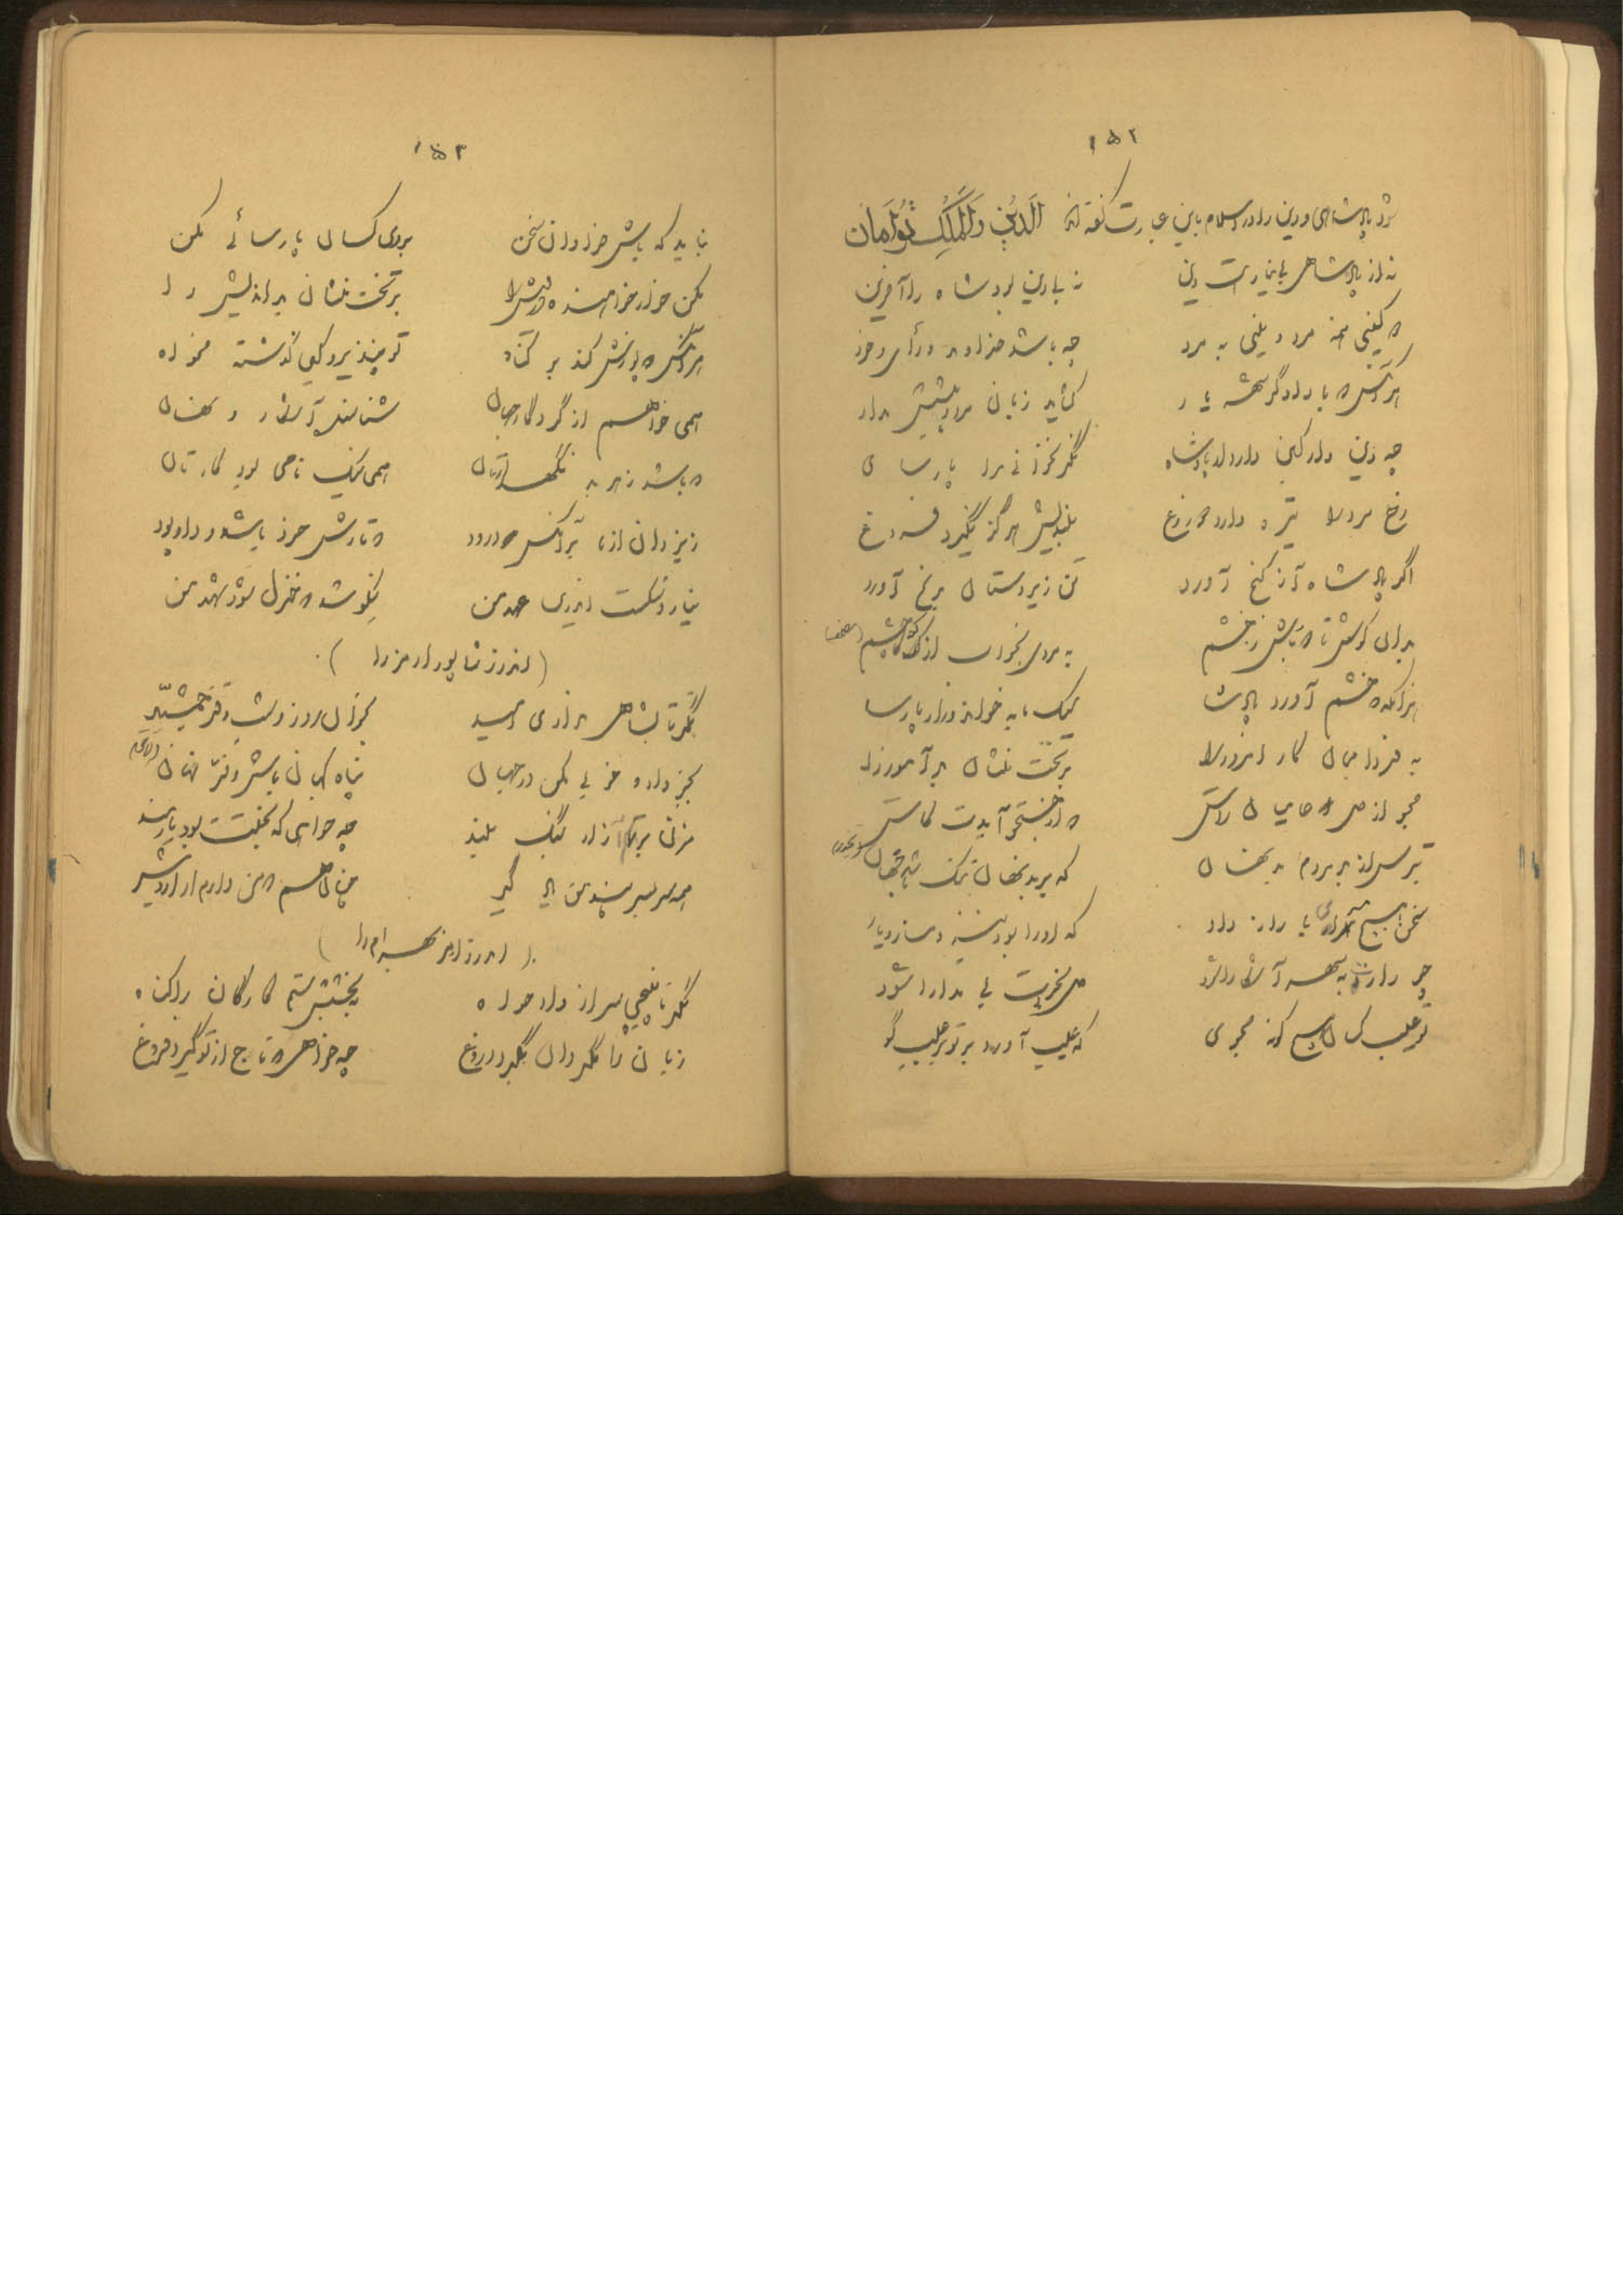 ۱۵۲
پادشاهی و دین را در اسلام باین عبارت گفته‌اند اَلدّینُ وَالْمُلْکُ تَوْأَمانِ
نه از پادشاهی بی‌نیاز است دین نه بی‌دین بود شاه را آفرین
نه گیتی
هر آنکس که با دادگر شهریار گشاید زبان مرد
چه دین دار کین دارد از پادشاه نگر نخوانی مر او پارسای
رخ مرد را تیره دارد دروغ بلندیش هرگز نگیرد فروغ
اگر پادشاه آز گنج آورد تن زیردستان برنج آورد
بدان کوش تا دور باشی ز خشم به مردی بخواب از گنه‌کار چشم
هر آنگه که خشم آورد پادشا سبک‌مایه خواند ورا پارسا
به فردا ممان کار امروز را بر تخت منشان بدآموز را
مجو از دل عامیان راستی که از جستجو آیدت کاستی
بترس از بد مردم بدنهان که بر بدنهان تنگ شد جهان
سخن هیچ مسرای با رازدار که او را بود نیز دمساز و یار
چو رازت به شهر آشکارا شود دل بخردت بی مدارا شود
تو عیب کسان هیچ گونه مجوی که عیب آورد بر تو بر عیب‌گو
۱۵۳
نباید که باشی فراوان سخن بروی کسان پارسائی مکن
مکن خوار خواهنده درویش را بر تخت منشان بداندیش را
هر آنکس که پوزش کند بر گناه تو بپذیر و کین گذشته مخواه
همی خواهم از کردگار جهان شناسنده آشکار و نهان
که باشد ز هر بد نگهدارتان همی نیک نامی بود کارتان
ز یزدان و از ما بر آنکس درود که تارش خرد باشد و داد پود
نیارد شکست اندرین عهد من نکوشد که حنظل شود شهد من
(اندرز شاپور اورمزد را)
نگر تا بشاهی نداری امید بخوان روز و شب دفتر جمشید
بجز داد و خوبی مکن در جهان پناه کهان باش و فرّ مهان
مزن بر کم‌آزار بانگ بلند چو خواهی که بختت بود یارمند
همه سربسر پند من یاد گیر چنان هم که من دارم از اردشیر
(اندرز اورمزد بهرام را)
نگر تا نپیچی سر از دادخواه نبخشی ستمکارگان را گناه
زبان را مگردان بگرد دروغ چو خواهی که تاج از تو گیرد فروغ